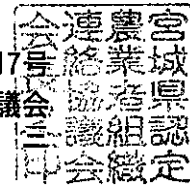 17号
議会
宮城県認定
農業者組織
連絡協議会
会長之印